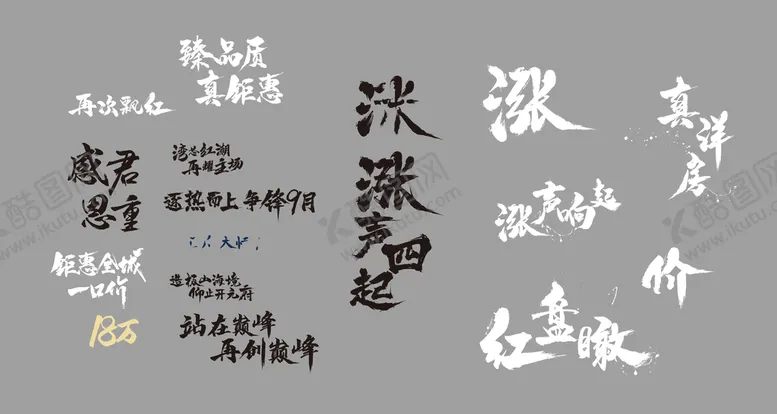 臻品质
真钜惠
再次飘红
感君
恩重
湾芯红湖
再耀主场
逐热而上 争锋9月
钜惠全城
一口价
18万
造极山海境
仰止开元府
站在巅峰
再创巅峰
涨
涨声四起
涨
真洋房
涨声响起
价
红盘暾
酷图网
www.ikutu.com